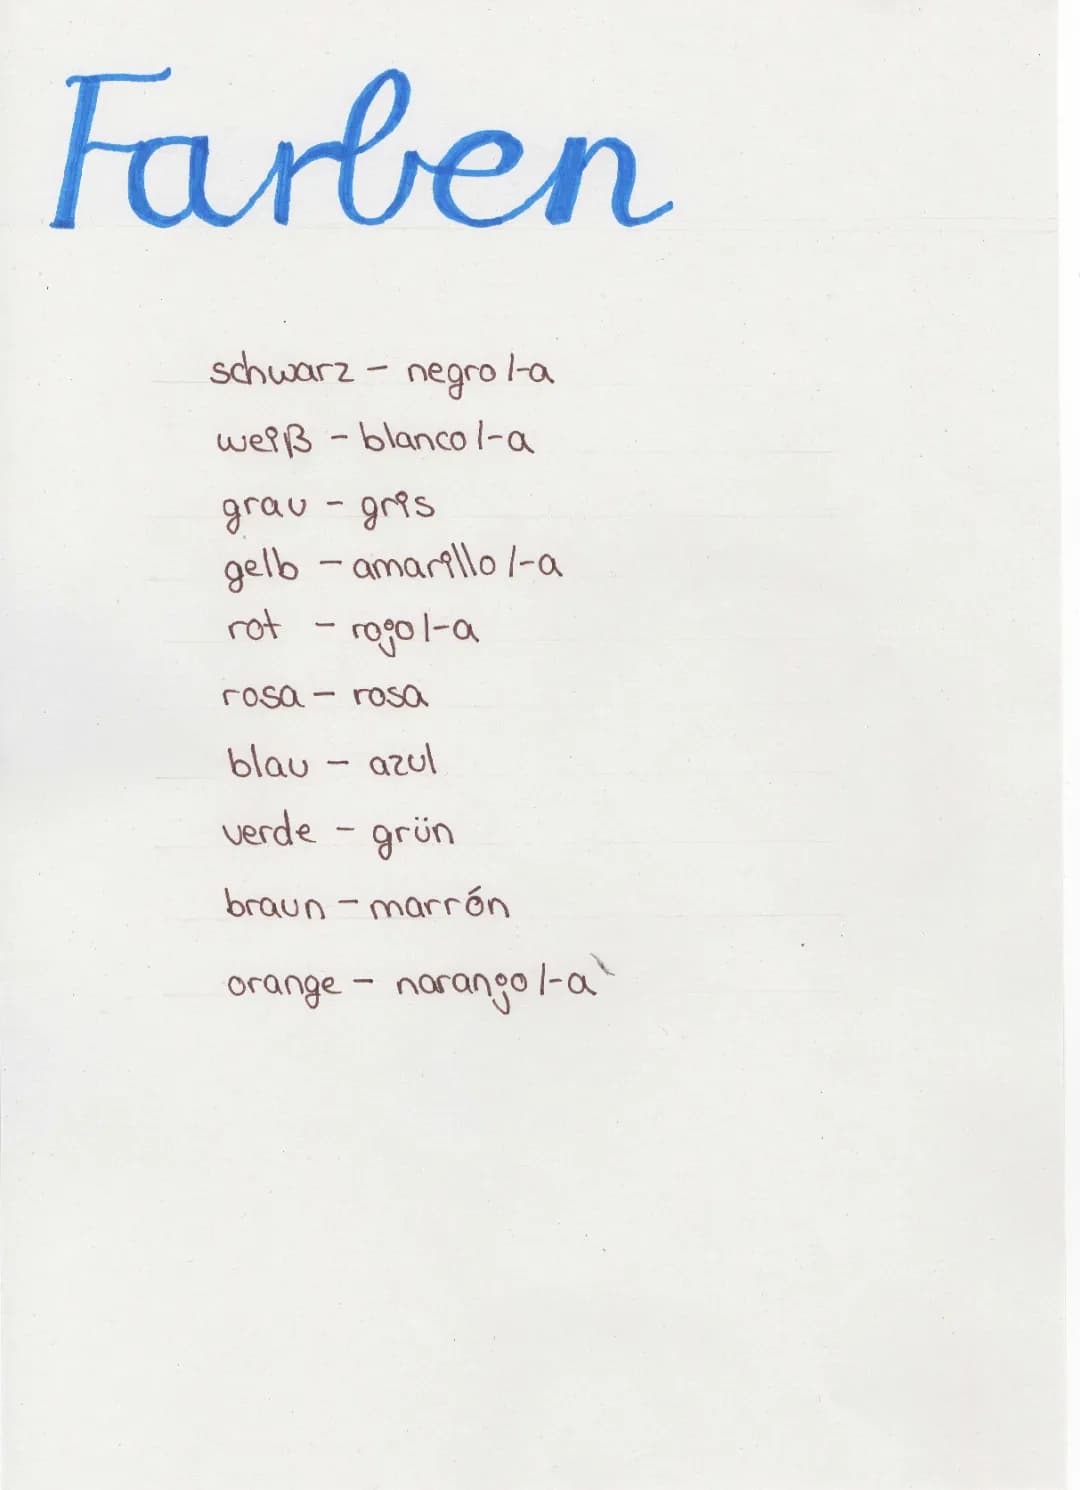 Farben
schwarz - negro/-a
weiß - blanco/-a
grau - gris
gelb - amarillo/-a
rot - rojo/-a
rosa - rosa
blau - azul
verde - grün
braun - marrón
orange - naranjo/-a